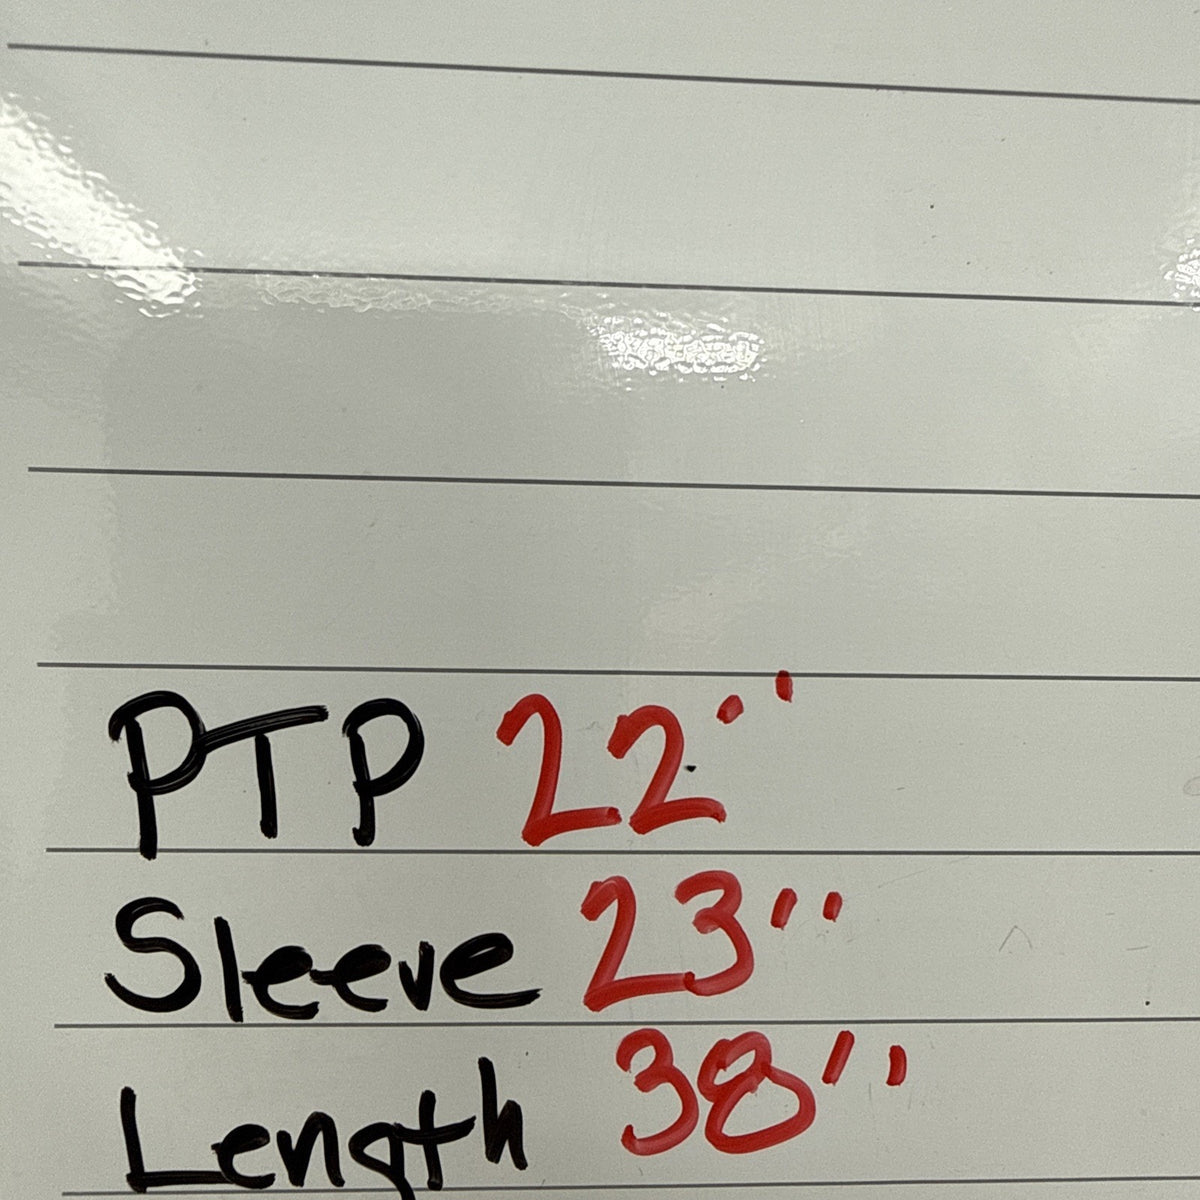 PTP 22''
Sleeve 23''
Length 38''